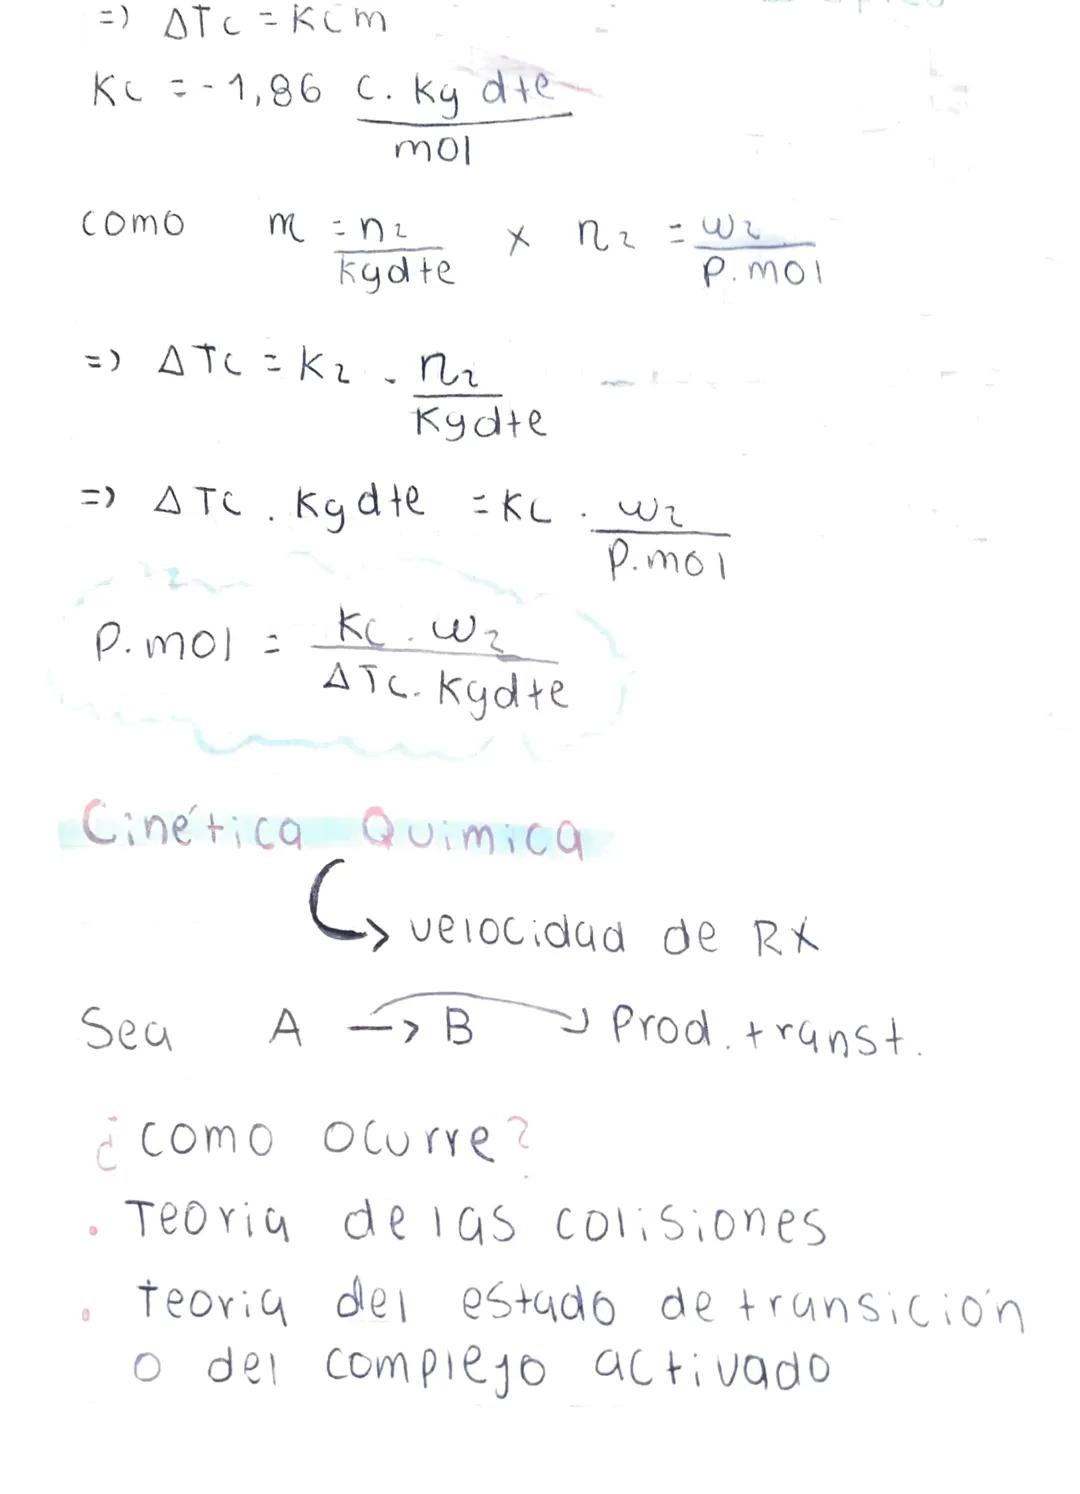 =) ΔTc = Kcm
Kc = -1,86 C. Kg dte / mol
como m = n2 / Kgdte x n2 = w2 / P.mol
=) ΔTc = K2 . n2 / Kgdte
=) ΔTc . Kg dte = Kc . w2 / P.mol
P.mol = Kc . w2 / ΔTc. Kgdte
Cinética Quimica
velocidad de RX
Sea A -> B Prod. transt.
¿como ocurre?
. Teoria de las colisiones
. teoria del estado de transición
o del complejo activado